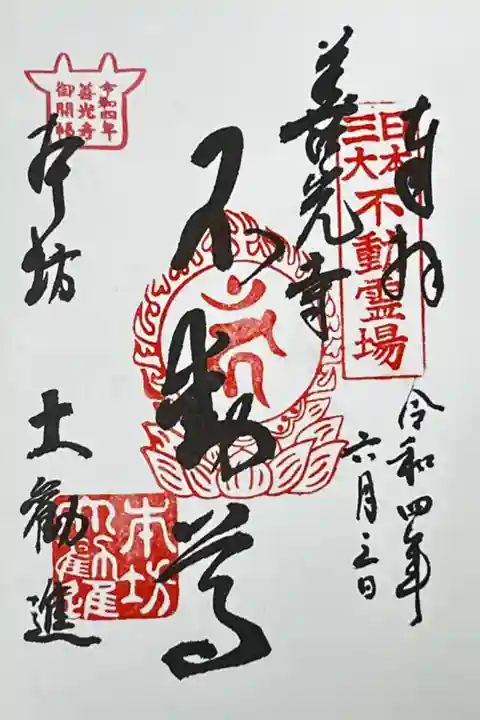 奉拝
日本
三大
不動霊場
令和四年
六月三日
善光寺
不動尊
令和四年
善光寺
御開帳
本坊
大勧進
本坊
大勧進